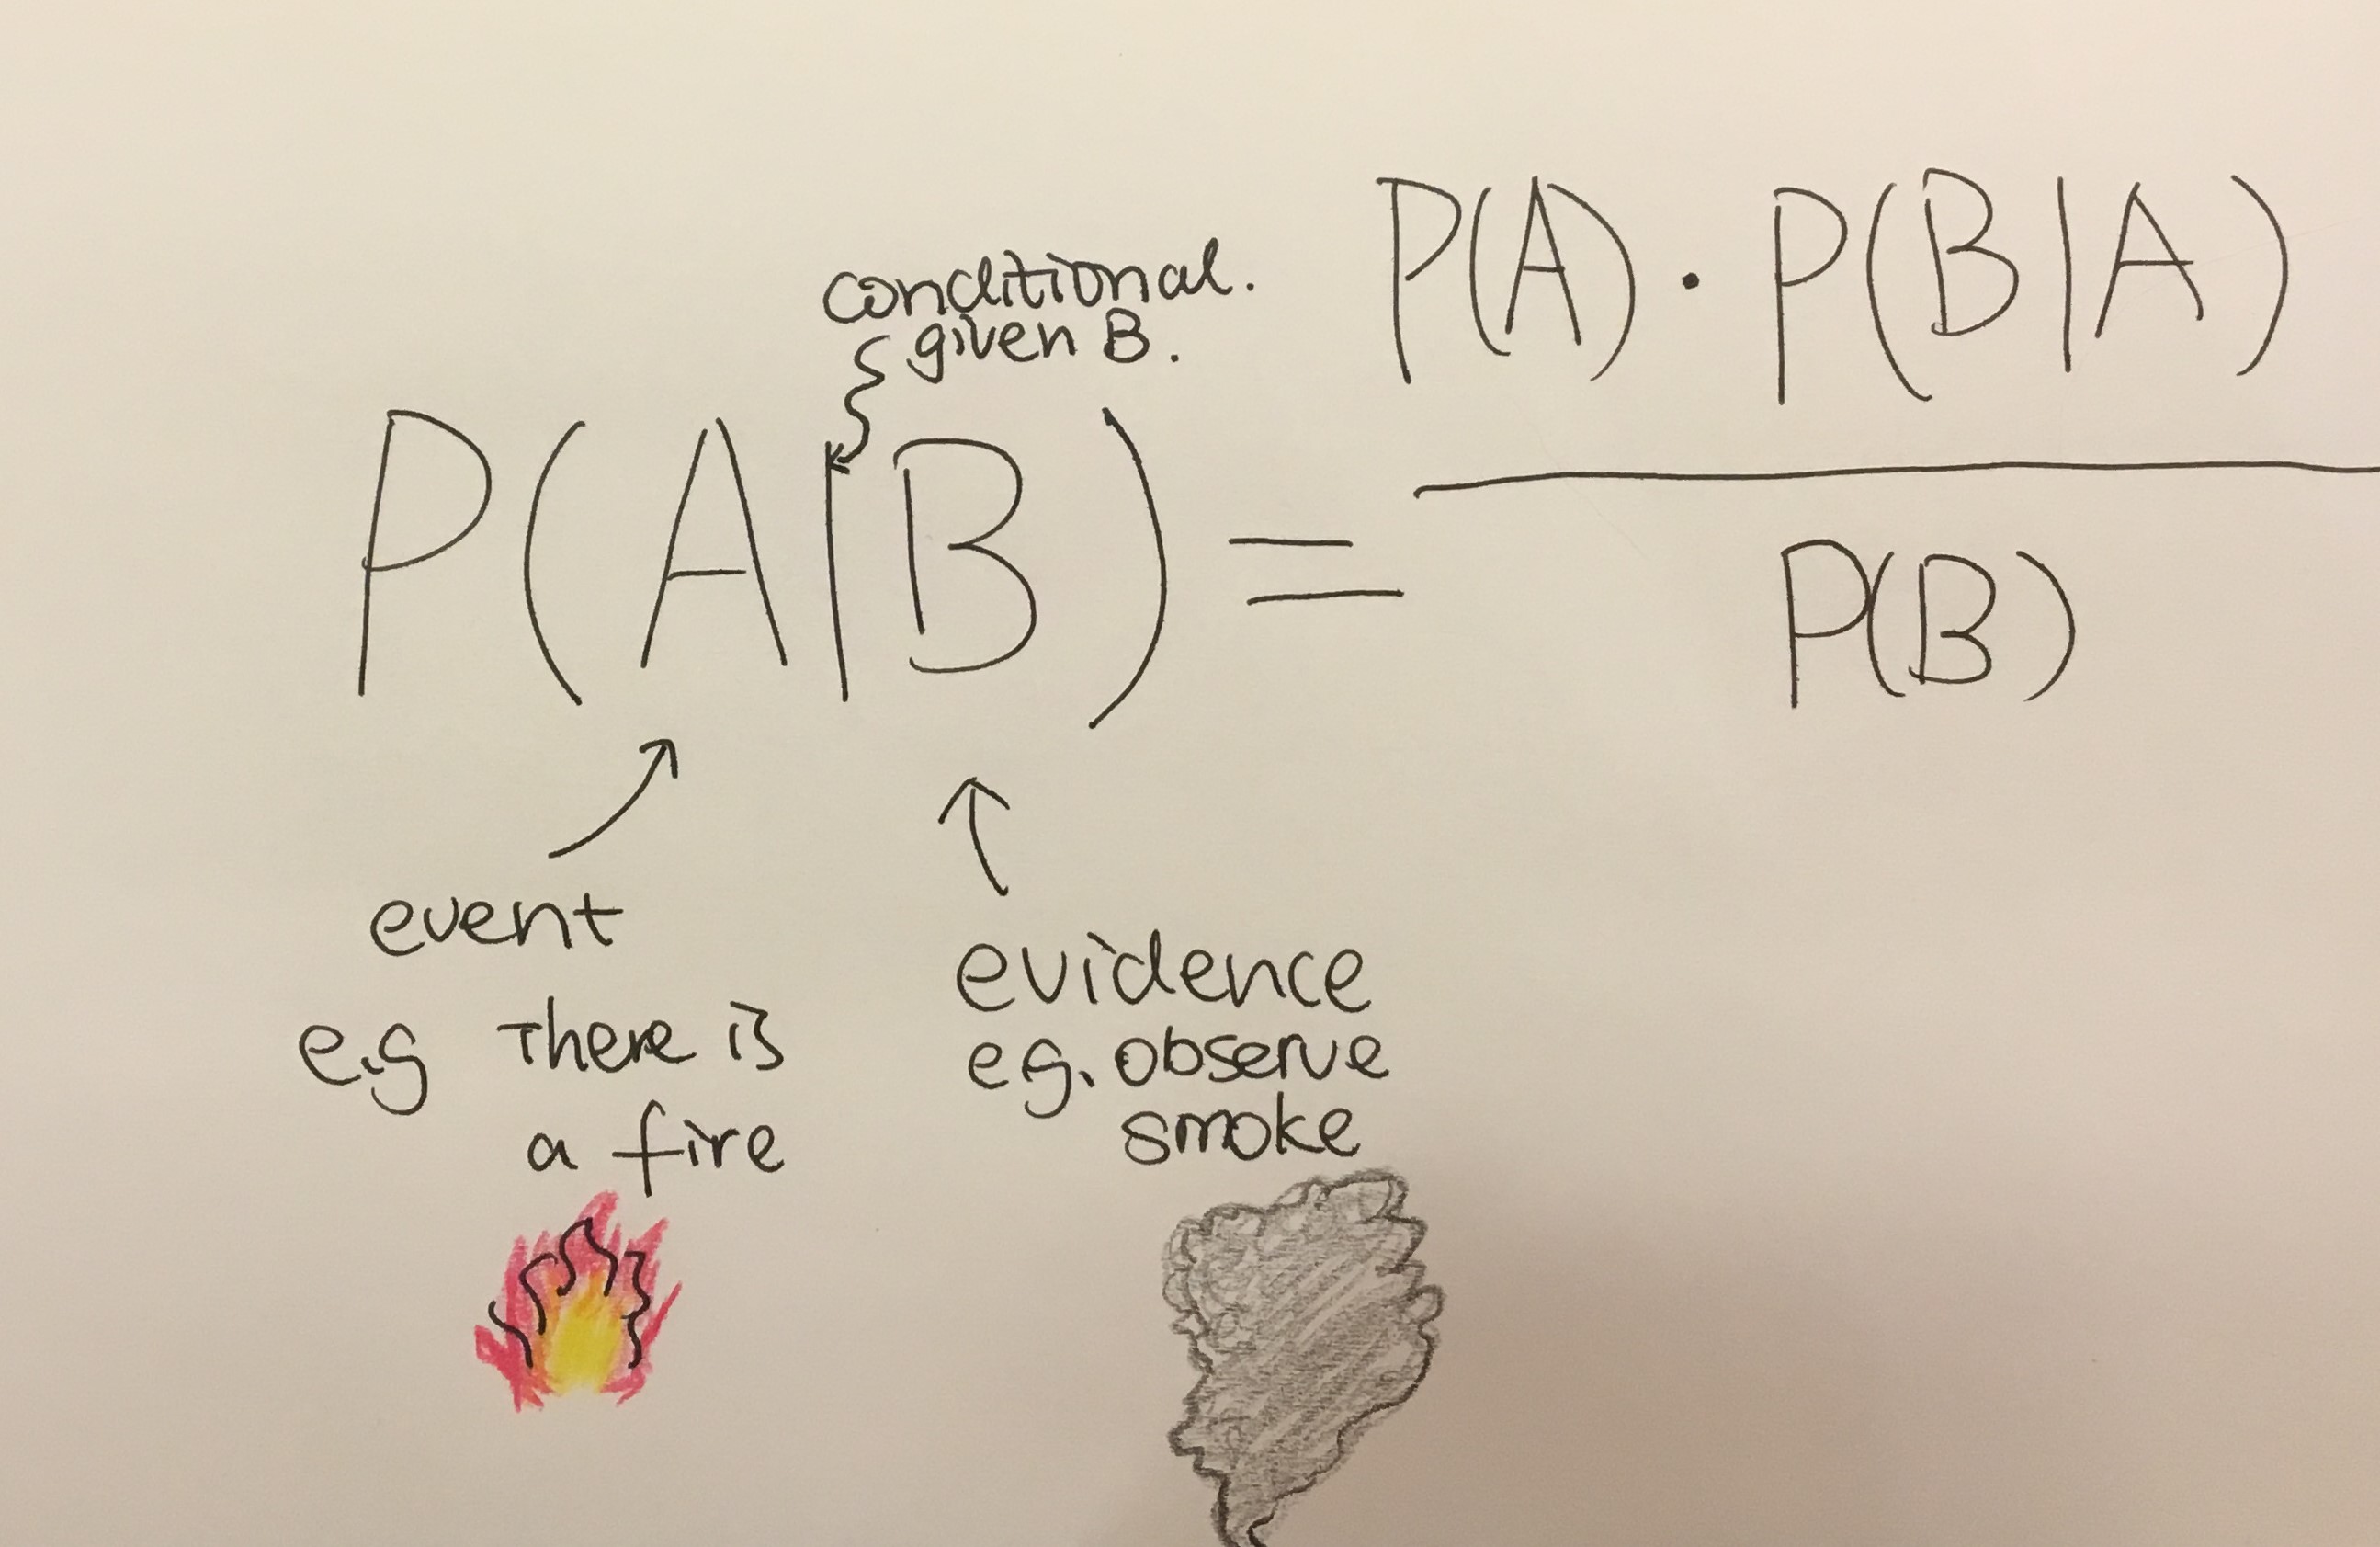 conditional.
given B.
P(A) · P(B|A)
P(A|B) =
P(B)
event
e.g There is
a fire
evidence
e.g. observe
smoke